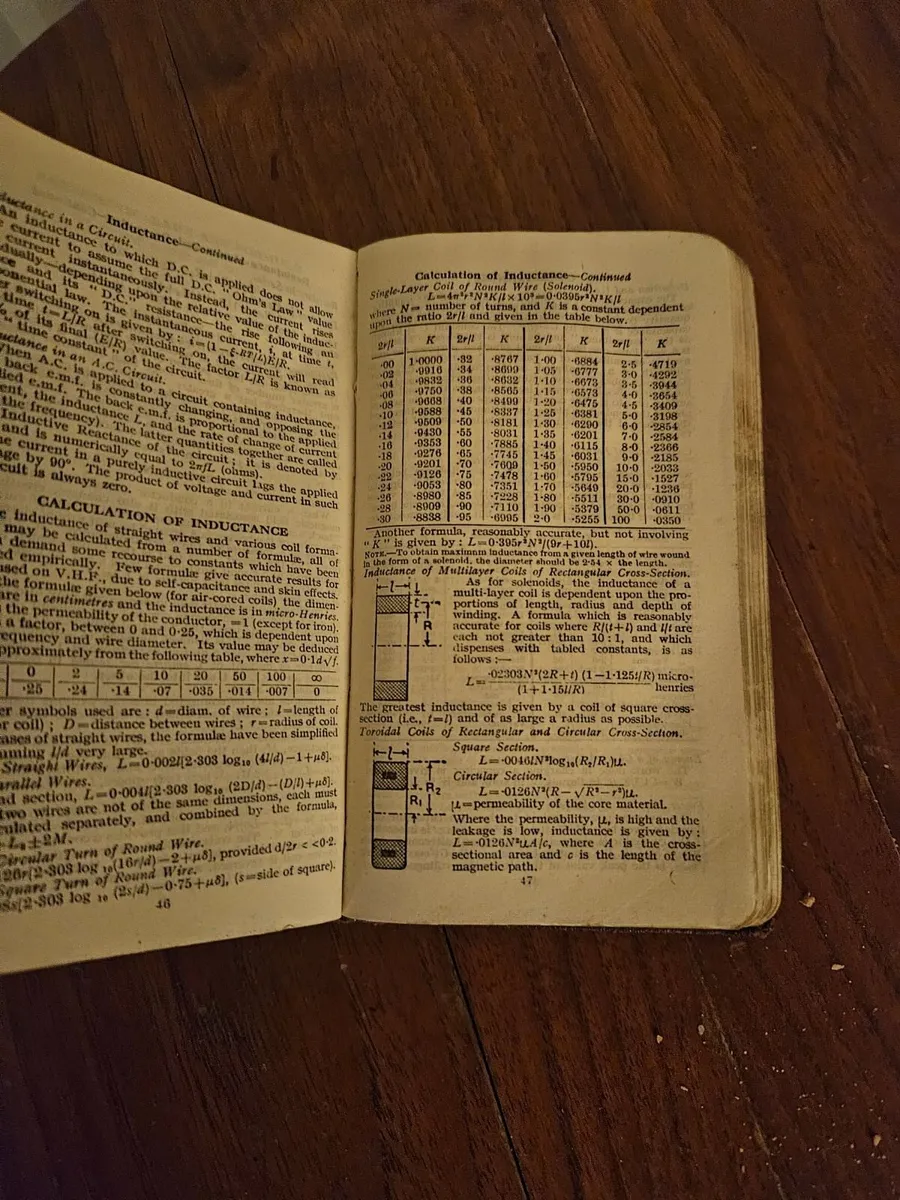 Inductance—Continued
Inductance in a Circuit.
An inductance to which D.C. is applied does not allow
current to assume the full D.C. "Ohm's Law" value
instantaneously. Instead, the current rises
depending upon the relative value of the induc-
and its "D.C." resistance—the rise following an
law. The instantaneous current, i, at time t,
switching on is given by: i=(1-ξ-RT/L)E/R.
time t=L/R after switching on, the current will read
of its final (E/R) value. The factor L/R is known as
"time constant" of the circuit.
in an A.C. Circuit.
When A.C. is applied to a circuit containing inductance,
back e.m.f. is constantly changing, and opposing the
e.m.f. The back e.m.f. is proportional to the applied
the inductance L, and the rate of change of current
the frequency). The latter quantities together are called
Inductive Reactance of the circuit; it is denoted by
and is numerically equal to 2πfL (ohms).
current in a purely inductive circuit lags the applied
by 90°. The product of voltage and current in such
is always zero.
CALCULATION OF INDUCTANCE
inductance of straight wires and various coil forma-
may be calculated from a number of formulæ, all of
demand some recourse to constants which have been
empirically. Few formulæ give accurate results for
used on V.H.F., due to self-capacitance and skin effects.
the formulæ given below (for air-cored coils) the dimen-
are in centimetres and the inductance is in micro-Henries.
the permeability of the conductor, =1 (except for iron).
a factor, between 0 and 0·25, which is dependent upon
frequency and wire diameter. Its value may be deduced
approximately from the following table, where x=0·1d√f.
0 2 5 10 20 50 100 ∞
·25 ·24 ·14 ·07 ·035 ·014 ·007 0
symbols used are: d=diam. of wire; l=length of
or coil); D=distance between wires; r=radius of coil.
cases of straight wires, the formulæ have been simplified
l/d very large.
Straight Wires, L=0·002l[2·303 log10 (4l/d)-1+μδ].
Parallel Wires.
section, L=0·004l[2·303 log10 (2D/d)-(D/l)+μδ].
two wires are not of the same dimensions, each must
calculated separately, and combined by the formula,
±2M.
Circular Turn of Round Wire.
[2·303 log10(16r/d)-2+μδ], provided d/2r < <0·2.
Square Turn of Round Wire.
[2·303 log10 (2s/d)-0·75+μδ], (s=side of square).
46
Calculation of Inductance—Continued
Single-Layer Coil of Round Wire (Solenoid).
L=4π²r²N²K/l×10³=0·0395r²N²K/l
where N= number of turns, and K is a constant dependent
upon the ratio 2r/l and given in the table below.
2r/l K 2r/l K 2r/l K 2r/l K
·00 1·0000 ·32 ·8767 1·00 ·6884 2·5 ·4719
·02 ·9916 ·34 ·8699 1·05 ·6777 3·0 ·4292
·04 ·9832 ·36 ·8632 1·10 ·6673 3·5 ·3944
·06 ·9750 ·38 ·8565 1·15 ·6573 4·0 ·3654
·08 ·9668 ·40 ·8499 1·20 ·6475 4·5 ·3409
·10 ·9588 ·45 ·8337 1·25 ·6381 5·0 ·3198
·12 ·9509 ·50 ·8181 1·30 ·6290 6·0 ·2854
·14 ·9430 ·55 ·8031 1·35 ·6201 7·0 ·2584
·16 ·9353 ·60 ·7885 1·40 ·6115 8·0 ·2366
·18 ·9276 ·65 ·7745 1·45 ·6031 9·0 ·2185
·20 ·9201 ·70 ·7609 1·50 ·5950 10·0 ·2033
·22 ·9126 ·75 ·7478 1·60 ·5795 15·0 ·1527
·24 ·9053 ·80 ·7351 1·70 ·5649 20·0 ·1236
·26 ·8980 ·85 ·7228 1·80 ·5511 30·0 ·0910
·28 ·8909 ·90 ·7110 1·90 ·5379 50·0 ·0611
·30 ·8838 ·95 ·6995 2·0 ·5255 100 ·0350
Another formula, reasonably accurate, but not involving
"K" is given by: L=0·395r²N²/(9r+10l).
NOTE.—To obtain maximum inductance from a given length of wire wound
in the form of a solenoid, the diameter should be 2·54 × the length.
Inductance of Multilayer Coils of Rectangular Cross-Section.
As for solenoids, the inductance of a
multi-layer coil is dependent upon the pro-
portions of length, radius and depth of
winding. A formula which is reasonably
accurate for coils where R/(t+l) and l/t are
each not greater than 10:1, and which
dispenses with tabled constants, is as
follows:—
l
t
R
L= ·02303N²(2R+t) (1-1·125t/R) micro-
(1+1·15l/R) henries
The greatest inductance is given by a coil of square cross-
section (i.e., t=l) and of as large a radius as possible.
Toroidal Coils of Rectangular and Circular Cross-Section.
l
R2
R1
Square Section.
L=·0046lN²log10(R2/R1)μ.
Circular Section.
L=·0126N²(R-√R²-r²)μ.
μ=permeability of the core material.
Where the permeability, μ, is high and the
leakage is low, inductance is given by:
L=·0126N²μA/c, where A is the cross-
sectional area and c is the length of the
magnetic path.
47